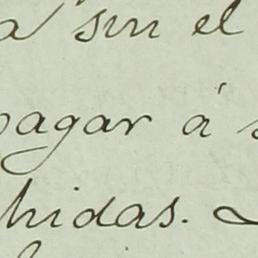 a sin el
pagar á
hidas.